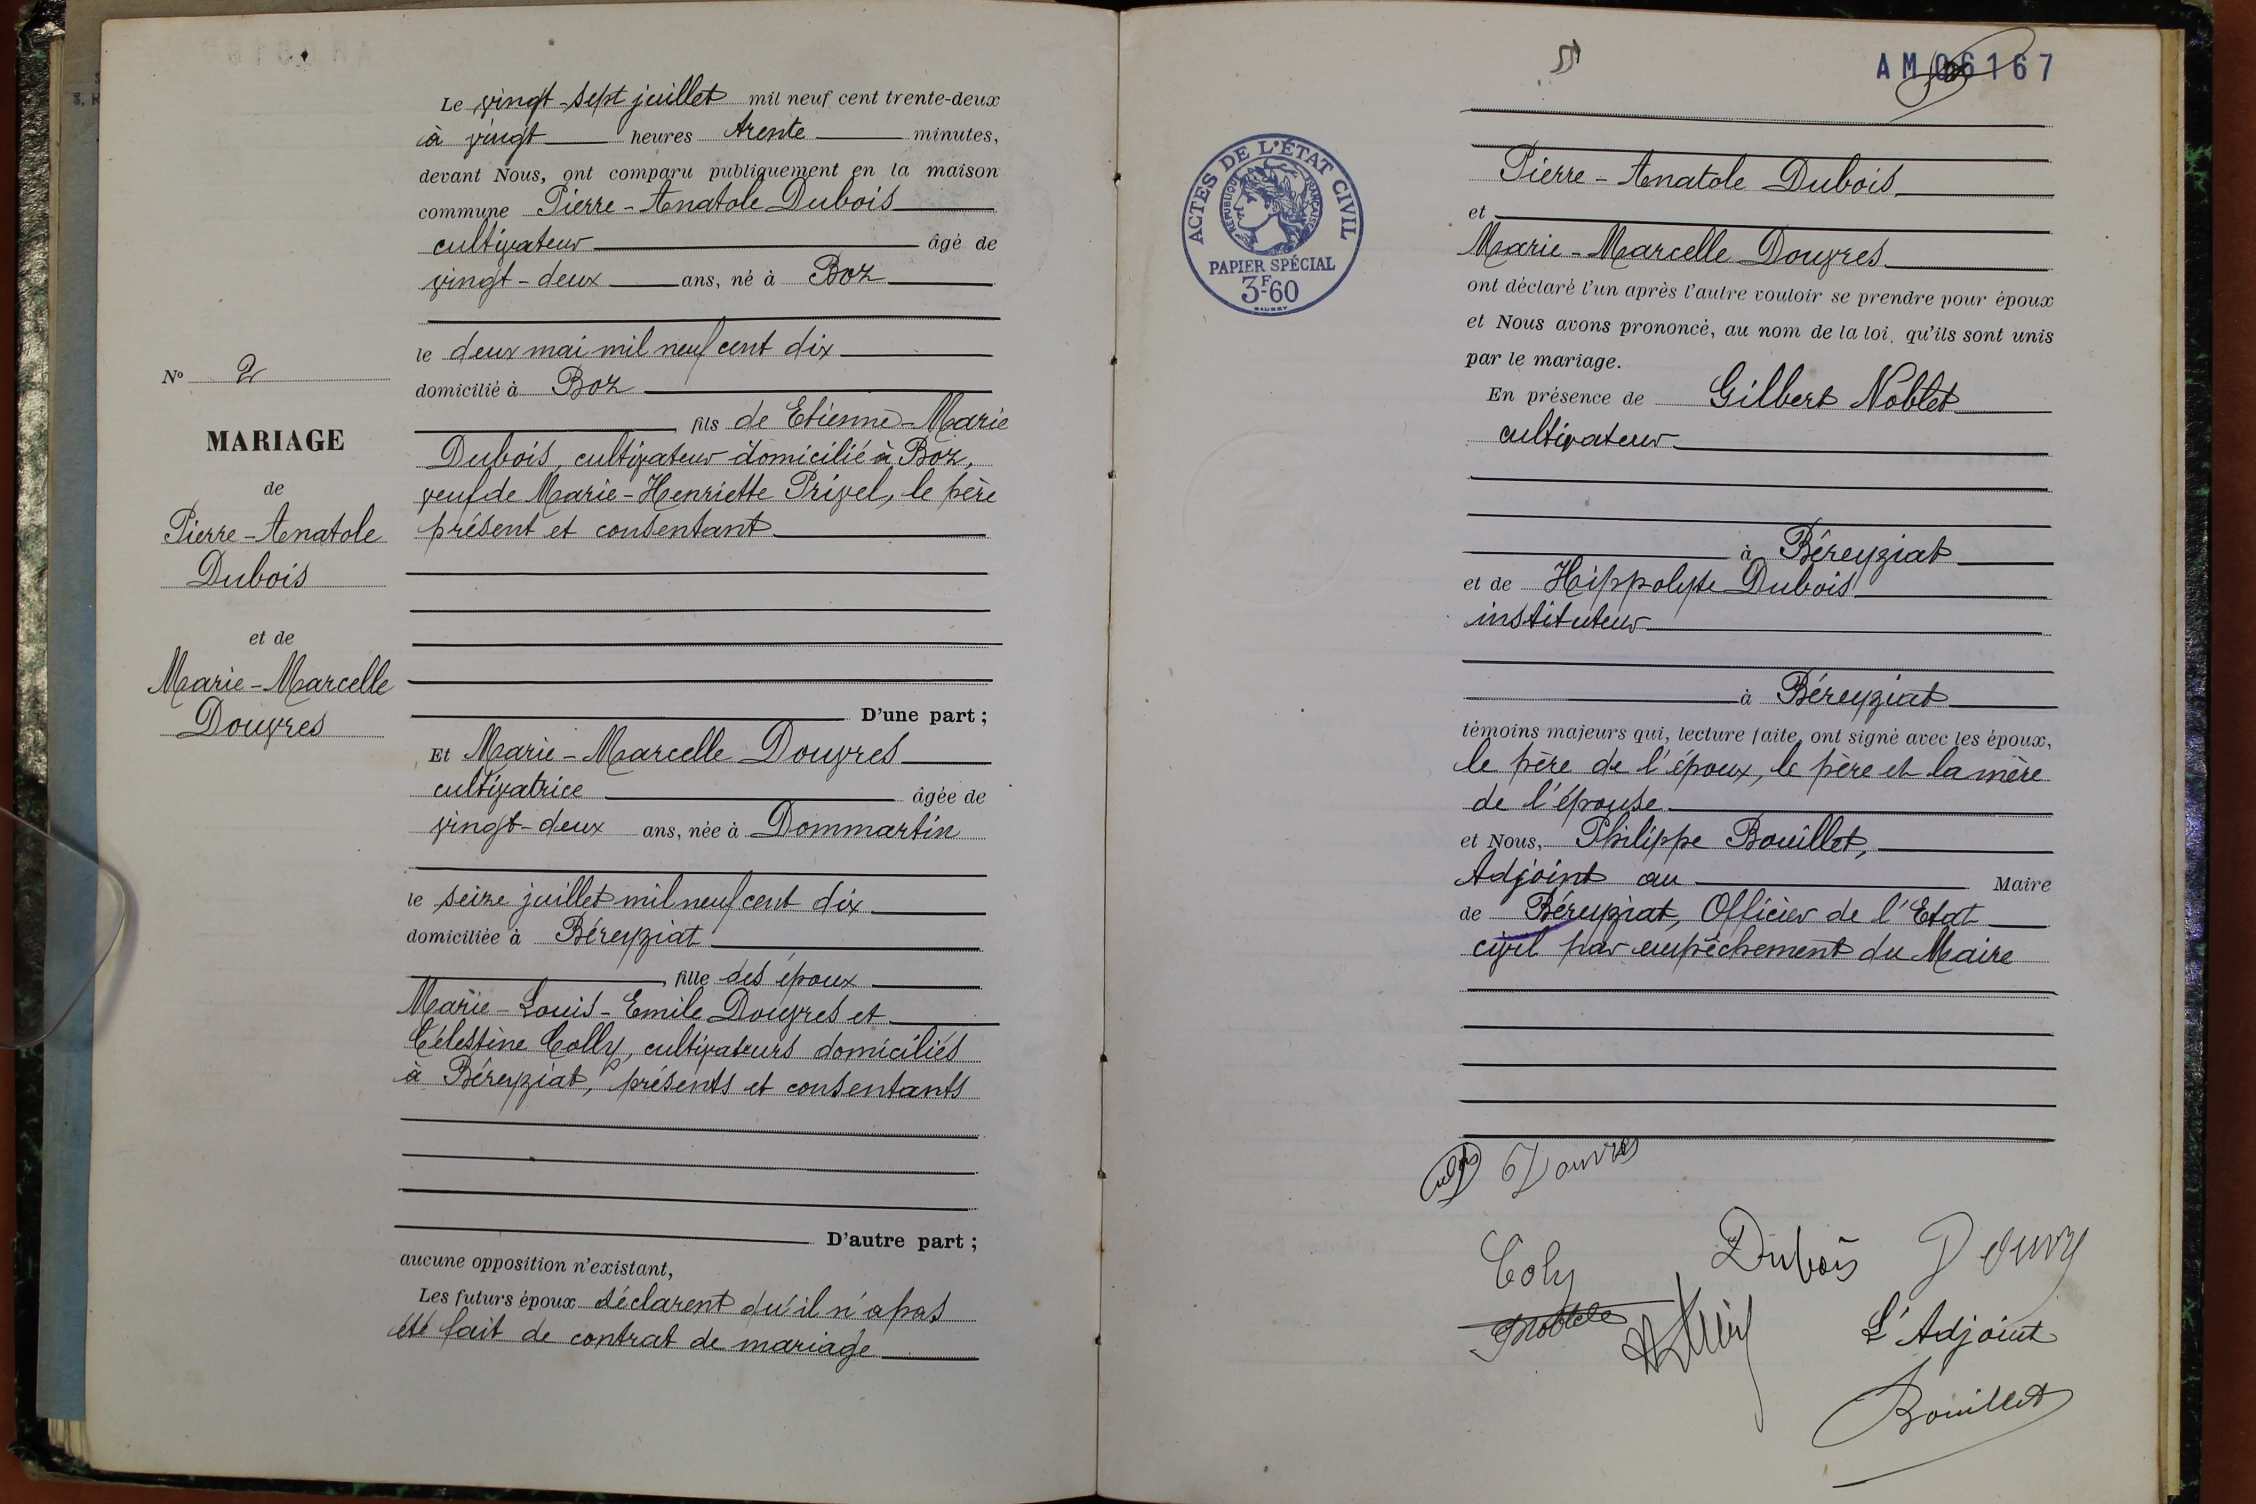 N° 2
MARIAGE
de
Pierre-Anatole
Dubois
et de
Marie-Marcelle
Douvres
Le vingt-sept juillet mil neuf cent trente-deux
à vingt heures trente minutes,
devant Nous, ont comparu publiquement en la maison
commune Pierre-Anatole Dubois
cultivateur âgé de
vingt-deux ans, né à Boz
le deux mai mil neuf cent dix
domicilié à Boz
fils de Etienne-Marie
Dubois, cultivateur domicilié à Boz,
veuf de Marie-Henriette Privel, le père
présent et consentant
D'une part ;
Et Marie-Marcelle Douvres
cultivatrice âgée de
vingt-deux ans, née à Dommartin
le seize juillet mil neuf cent dix
domiciliée à Béreyziat
fille des époux
Marie-Louis-Emile Douvres et
Célestine Colly, cultivateurs domiciliés
à Béreyziat, présents et consentants
D'autre part ;
aucune opposition n'existant,
Les futurs époux déclarent qu'il n'a pas
été fait de contrat de mariage
AM06167
ACTES DE L'ÉTAT CIVIL
RÉPUBLIQUE FRANÇAISE
PAPIER SPÉCIAL
3F60
Pierre-Anatole Dubois
et
Marie-Marcelle Douvres
ont déclaré l'un après l'autre vouloir se prendre pour époux
et Nous avons prononcé, au nom de la loi, qu'ils sont unis
par le mariage.
En présence de Gilbert Noblet
cultivateur
à Béreyziat
et de Hippolyte Dubois
instituteur
à Béreyziat
témoins majeurs qui, lecture faite, ont signé avec les époux,
le père de l'époux, le père et la mère
de l'épouse
et Nous, Philippe Bouillet,
Adjoint au Maire
de Béreyziat, Officier de l'Etat
civil par empêchement du Maire
Douvres
Coly Dubois Douvre
Noblet
L'Adjoint
Bouillet